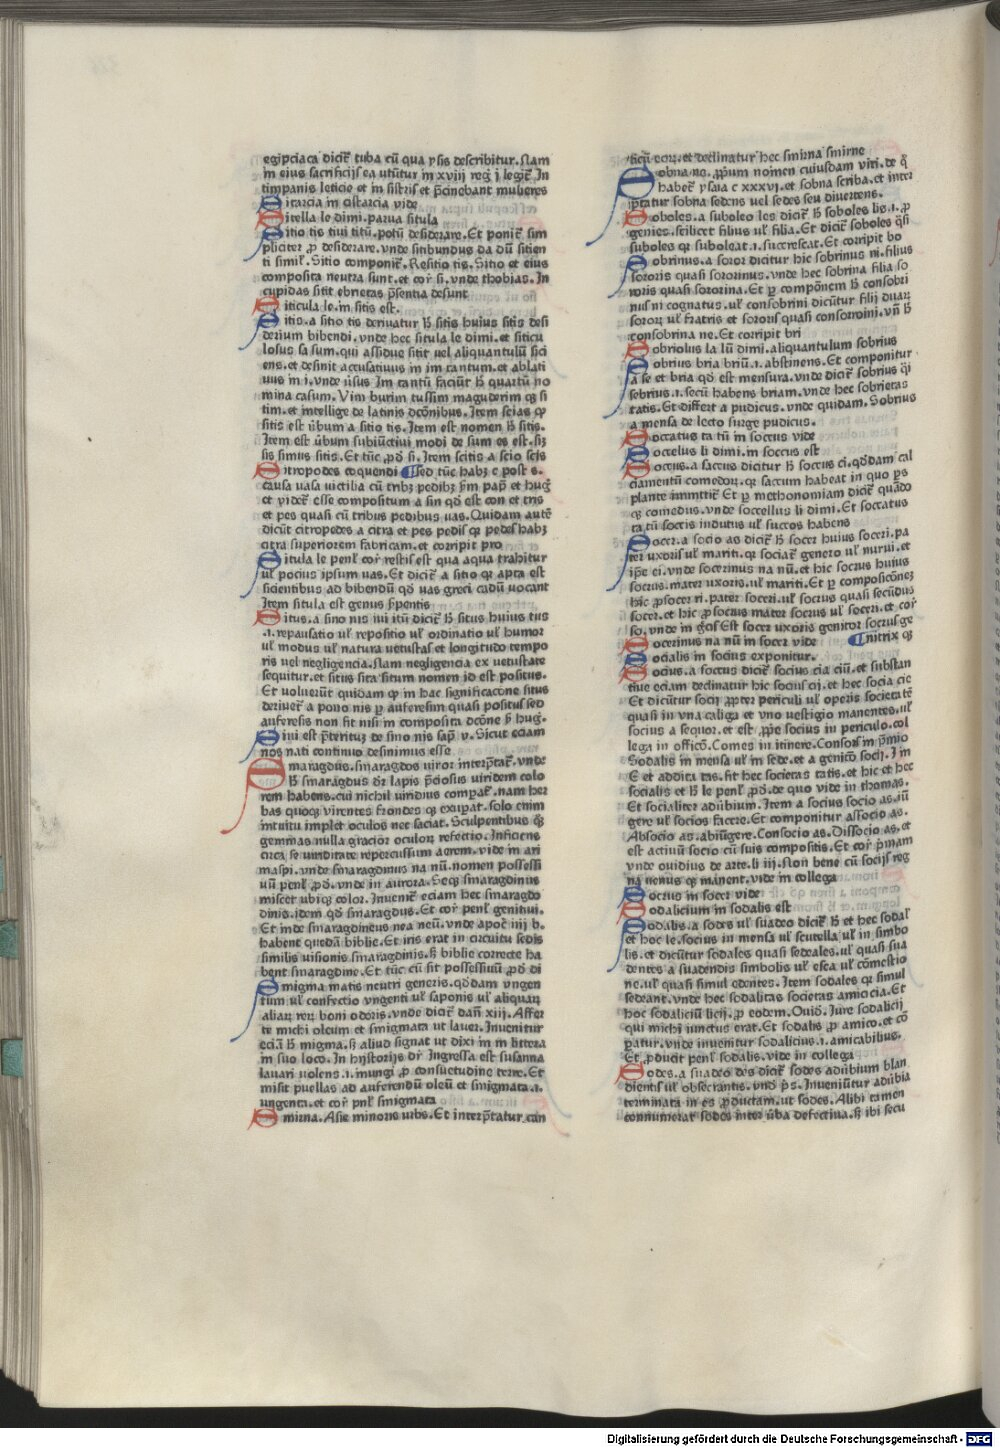 egipciaca dicit̃ tuba cũ qua ysis describitur. Nam
in eius sacrificijs ea utũtur in xviij reg̃ j legit̃ In
timpanis leticie et in sistris et p̃cinebant mulieres
Sitarcia in cistarcia vide
Sitella le dimi. parua situla
Sitio tis tiui titũ. potũ desiderare. Et ponit̃ sim
pliciter ꝓ desiderare. vnde sitibundus da dũ sitien
ti simil̃. Sitio componit̃. Resitio tis. Sitio et eius
composita neutra sunt. et cor̃ si. vnde thobias. In
cupidas sitit ebrietas p̃sentia desunt
Siticula le. in sitis est.
Sitis. a sitio tis deriuatur h̃ sitis huius sitis desi
derium bibendi. vnde hec situla le dimi. et siticu
losus sa sum. qui assidue sitit uel aliquantulũ sici
ens. et desinit accusatiuus in im tantum. et ablati
uus in i. vnde ũsus Im tantũ faciũt h̃ quartũ no
mina casum. Vim burim tussim maguderim qꝫ si
tim. et intellige de latinis dcõnibus. Item scias ꝙ
sitis est ũbum a sitio tis. Item est nomen h̃ sitis.
Item est ũbum subiũctiui modi de sum es est. siꝫ
sis simus sitis. Et tũc ꝓd̃ si. Item scitis a scio scis
Sitropodes coquendi ¶Sed tũc habꝫ c post s.
causa uasa uictilia cũ tribꝫ pedibꝫ s̃m pap̃ et hug̃
et videt̃ esse compositum a sin qd̃ est con et tris
et pes quasi cũ tribus pedibus uas. Quidam autẽ
dicũt citropedes a citra et pes pedis qꝛ pedes habꝫ
citra superiorem fabricam. et corripit pro
Situla le penl̃ cor̃ restis est qua aqua trahitur
ul̃ pocius ipsum uas. Et dicit̃ a sitio qꝛ apta est
sicientibus ad bibendũ qd̃ uas greci cadũ uocant
Item situla est genus s̃pentis
Situs. a sino nis iui itũ dicit̃ h̃ situs huius tus
.i. repausatio ul̃ repositio ul̃ ordinatio ul̃ humor
ul̃ modus ul̃ natura uetustas et longitudo tempo
ris uel negligencia. Nam negligencia ex uetustate
sequitur. et situs sita situm nomen id est positus.
Et voluerũt quidam ꝙ in hac significacõne situs
deriuet̃ a pono nis ꝑ auferesim quasi positus sed
auferesis non fit nisi in composita dcõne h̃ hug̃.
Siui est p̃teritũ de sino nis sap̃ v. Sicut eciam
nos nati continuo desinimus esse
Smaragdus. smaragdos uiror interp̃tat̃. vnde
h̃ smaragdus dr̃ lapis p̃ciosus uiridem colo
rem habens. cui nichil uiridius compat̃. nam her
bas quoqꝫ virentes frondes qꝫ exupat. solo enim
intuitu implet oculos nec saciat. Sculpentibus qꝫ
gemmas nulla gracior oculorꝝ refectio. Inficiens
circa se uiriditate repercussum aerem. vide in ari
maspi. vnde smaragdinus na nũ. nomen possessi
uũ penl̃ ꝓd̃. vnde in aurora. Seqꝫ smaragdinus
miscet ubiqꝫ color. Inuenit̃ eciam hec smaragdo
dinis. idem qd̃ smaragdus. Et cor̃ penl̃ genitiui.
Et inde smaragdineus nea neũ. vnde apoc̃ iiij b.
habent quedã biblie. Et iris erat in circuitu sedis
similis visionis smaragdinis. s̃ biblie correcte ha
bent smaragdine. Et tũc cũ sit possessiuũ ꝓd̃ di
Smigma matis neutri generis. qd̃dam vngen
tum ul̃ confectio vngenti ul̃ saponis ul̃ aliquarꝝ
aliarꝝ rerꝝ boni odoris. vnde dicit̃ dañ xiij. Affer
te michi oleum et smigmata ut lauer. Inuenitur
eciã h̃ migma. s̃ aliud signat ut dixi in m littera
in suo loco. In hystorijs dr̃ Ingressa est susanna
lauari uolens .i. mungi ꝓ consuetudine terre. Et
misit puellas ad auferendũ oleũ et smigmata .i.
ungenta. et cor̃ pnl̃ smigmata
Smirna. Asie minoris urbs. Et interp̃tatur can
ticũ eorꝝ. et declinatur hec smirna smirne
Sobna ne. ꝓpium nomen cuiusdam viri. de q̃
habet̃ ysaia c xxxvj. et sobna scriba. et inter
p̃tatur sobna sedens uel sedes seu diuertens.
Soboles. a suboleo les dicit̃ h̃ soboles lis .i. ꝓ
genies. scilicet filius ul̃ filia. Et dicit̃ soboles q̃si
suboles qꝛ suboleat .i. succrescat. Et corripit bo
Sobrinus. a soror dicitur hic sobrinus ni. filius
sororis quasi sororinus. vnde hec sobrina filia so
roris quasi sororina. Et ꝑ compõnem h̃ consobri
nus ni cognatus. ul̃ consobrini dicũtur filij duarꝝ
sororꝝ ul̃ fratris et sororis quasi consororini. vñ h̃
consobrina ne. Et corripit bri
Sobriolus la lũ dimi. aliquantulum sobrius
Sobrius bria briũ .i. abstinens. Et componitur
a se et bria qd̃ est mensura. vnde dicit̃ sobrius q̃i
sebrius .i. secũ habens briam. vnde hec sobrietas
tatis. Et differt a pudicus. vnde quidam. Sobrius
a mensa de lecto surge pudicus.
Soccatus ta tũ in soccus vide
Soccelus li dimi. in soccus est
Soccus. a saccus dicitur h̃ soccus ci. qd̃dam cal
ciamentũ comedorꝝ. qꝛ saccum habeat in quo ps
plante immittit̃ Et ꝑ methonomiam dicit̃ quãdo
qꝫ comedus. vnde soccellus li dimi. Et soccatus
ta tũ soccis indutus ul̃ succos habens
Socer. a socio as dicit̃ h̃ socer huius soceri. pa
ter uxoris ul̃ mariti. qꝛ sociat̃ genero ul̃ nurui. et
ip̃e ei. vnde socerinus na nũ. et hic socrus huius
socrus. mater uxoris. ul̃ mariti. Et ꝑ composicõnẽ
hic ꝓsocer ri. pater soceri. ul̃ socrus quasi secũdus
socer. et hic ꝓsocrus mater socrus ul̃ soceri. et cor̃
so. vnde in g̃cis Est socer uxoris genitor socrus ge
Socerinus na nũ in socer vide ¶nitrix qꝫ
Socialis in socius exponitur.
Socius. a soccus dicit̃ socius cia ciũ. et substan
tiue eciam declinatur hic socius cij. et hec socia cie
Et dicũtur socij ꝓpter periculi ul̃ operis societatẽ
quasi in vna caliga et vno uestigio manentes. ul̃
socius a sequor. et est ꝓpie socius in periculo. col
lega in officõ. Comes in itinere. Consors in p̃mio
Sodalis in mensa ul̃ in sede. et a genicõ socij. I in
E et addita tas. fit hec societas tatis. et hic et hec
socialis et h̃ le penl̃ ꝓd̃. de quo vide in thomas.
Et socialiter adũbium. Item a socius socio as. iũ
gere ul̃ socios facere. Et componitur associo as.
Absocio as. abiũgere. Consocio as. Dissocio as. et
est actiuũ socio cũ suis compositis. Et cor̃ p̃mam
vnde ouidius de arte. li iij. Non bene cũ socijs reg
na uenus qꝫ manent. vide in collega
Socrus in socer vide
Sodalicium in sodalis est
Sodalis. a sodes ul̃ suadeo dicit̃ h̃ et hec sodal̃
et hoc le. socius in mensa ul̃ scutella ul̃ in simbo
lis. et dicũtur sodales quasi sedeales. ul̃ quasi sua
dentes a suadendis simbolis ul̃ esca ul̃ cõmestio
ne. ul̃ quasi simul edentes. Item sodales qꝛ simul
sedeant. vnde hec sodalitas societas amicicia. Et
hoc sodaliciũ licij. ꝓ eodem. Ouid̃. Iure sodalicij
qui michi iunctus erat. Et sodalis ꝓ amico. et cõ
ꝑatur. vnde inuenitur sodalicius .i. amicabilius.
Et ꝓducit penl̃ sodalis. vide in collega
Sodes. a suadeo des dicit̃ sodes adũbium blan
dientis ul̃ obsecrantis. vnd̃ p̃s. Inueniũtur adũbia
terminata in es ꝓductam. ut sodes. Alibi tamen
connumerat sodes inter ũba defectiua. s̃ ibi secu
Digitalisierung gefördert durch die Deutsche Forschungsgemeinschaft - DFG